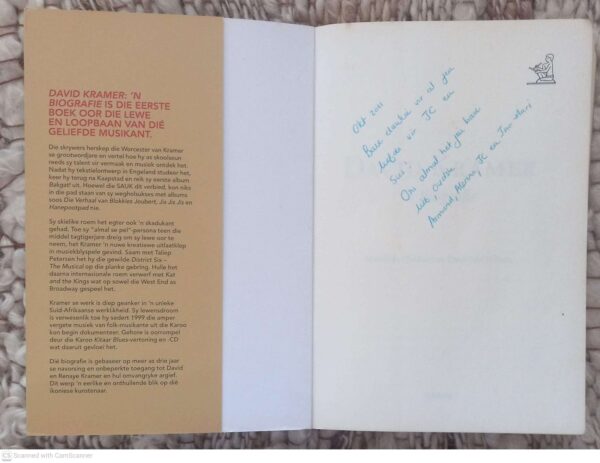 DAVID KRAMER: 'N
BIOGRAFIE IS DIE EERSTE
BOEK OOR DIE LEWE
EN LOOPBAAN VAN DIÉ
GELIEFDE MUSIKANT.
Die skrywers herskep die Worcester van Kramer
se grootwordjare en vertel hoe hy as skoolseun
reeds sy talent vir vermaak en musiek ontdek het.
Nadat hy tekstielontwerp in Engeland studeer het,
keer hy terug na Kaapstad en reik sy eerste album
Bakgat! uit. Hoewel die SAUK dit verbied, kon niks
in die pad staan van sy weghobukses met albums
soos Die Verhaal van Blokkies Joubert, Jis Jis Jis en
Hanepootpad nie.
Sy skielike roem het egter ook 'n skadukant
gehad. Toe sy "almal se pel"-persona teen die
middel tagtigerjare dreig om sy lewe oor te
neem, het Kramer 'n nuwe kreatiewe uitlaatklep
in musiekblyspele gevind. Saam met Taliep
Petersen het hy die gewilde District Six –
The Musical op die planke gebring. Hulle het
daarna internasionale roem verwerf met Kat
and the Kings wat op sowel die West End as
Broadway gespeel het.
Kramer se werk is diep geanker in 'n unieke
Suid-Afrikaanse werklikheid. Sy lewensdroom
is verwesenlik toe hy sedert 1999 die amper
vergete musiek van folk-musikante uit die Karoo
kon begin dokumenteer. Gehore is oorrompel
deur die Karoo Kitaar Blues-vertoning en -CD
wat daaruit gevloei het.
Dié biografie is gebaseer op meer as drie jaar
se navorsing en onbeperkte toegang tot David
en Renaye Kramer en hul omvangryke argief.
Dit werp 'n eerlike en onthullende blik op dié
ikoniese kunstenaar.
Okt 2011
Baie dankie vir al jou
liefde vir JC en
Sus
Ons almal het jou baie
lief,
Armand, JC en
CS Scanned with CamScanner